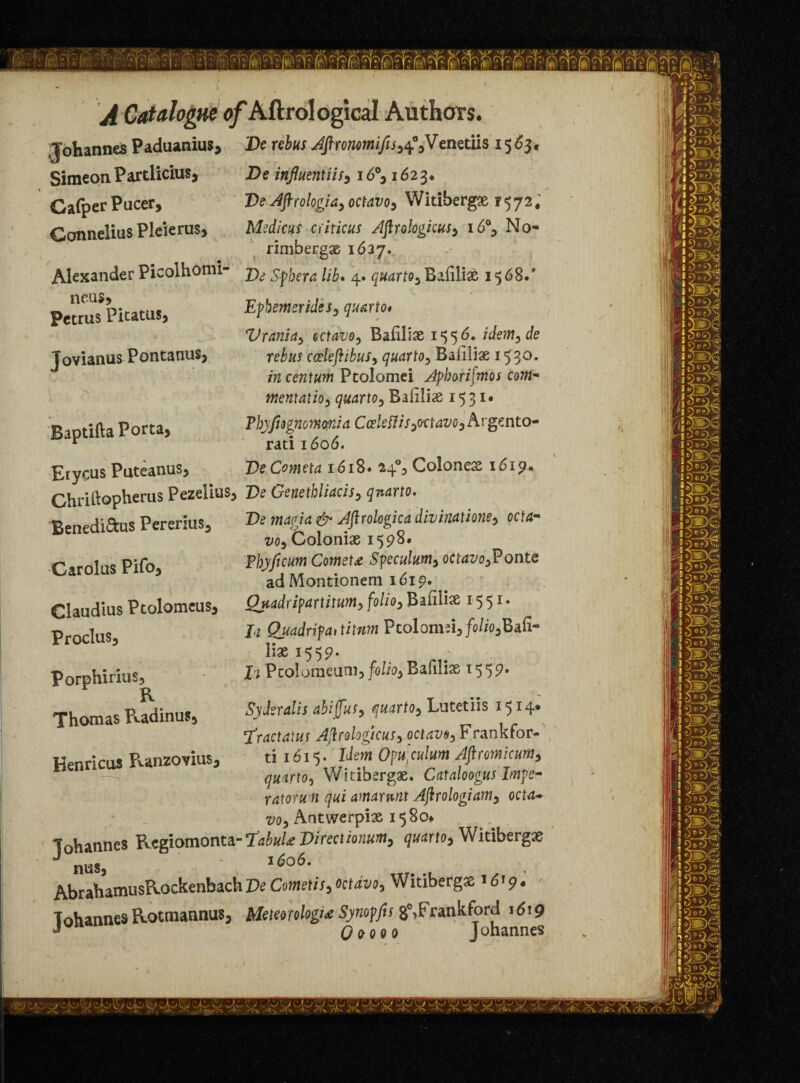 A Catalogue of Aſtrological Authors.
Johannes Paduanius, De rebus Aſtronomiſis, 4°, Venetiis 1563.
Simeon Partlicius, De influentiis, 16°, 1623.
Caſper Pucer, De Aſtrologia, octavo, Witibergæ 1572.
Connelius Pleierus, Medicus criticus Aſtrologicus, 16°, No-
rimbergæ 1627.
Alexander Picolhomi- De Sphera lib. 4. quarto, Baſiliæ 1568.
neus,
Petrus Pitatus, Ephemerides, quarto.
Vrania, octavo, Baſiliæ 1556. idem, de
Jovianus Pontanus, rebus cœleſtibus, quarto, Baſiliæ 1530.
in centum Ptolomei Aphoriſmos com-
mentatio, quarto, Baſiliæ 1531.
Baptiſta Porta, Phyſiognomonia Cœleſtis, octavo, Argento-
rati 1606.
Erycus Puteanus, De Cometa 1618. 24°, Coloneæ 1619.
Chriſtopherus Pezelius, De Genethliacis, quarto.
Benedictus Pererius, De magia & Aſtrologica divinatione, octa-
vo, Coloniæ 1598.
Carolus Piſo, Phyſicum Cometæ Speculum, octavo, Ponte
ad Montionem 1619.
Claudius Ptolomeus, Quadripartitum, folio, Baſiliæ 1551.
Proclus, In Quadripartitum Ptolomei, folio, Baſi-
liæ 1559.
Porphirius, In Ptolomeum, folio, Baſiliæ 1559.
R
Thomas Radinus, Syderalis abiſſus, quarto, Lutetiis 1514.
Tractatus Aſtrologicus, octavo, Frankfor-
Henricus Ranzovius, ti 1615. Idem Opuſculum Aſtromicum,
quarto, Witibergæ. Cataloogus Impe-
ratorum qui amarunt Aſtrologiam, octa-
vo, Antwerpiæ 1580.
Johannes Regiomonta- Tabulæ Directionum, quarto, Witibergæ
nus, 1606.
AbrahamusRockenbach De Cometis, octavo, Witibergæ 1619.
Johannes Rotmannus, Meteorologiæ Synopſis 8°, Frankford 1619
Ooooo Johannes